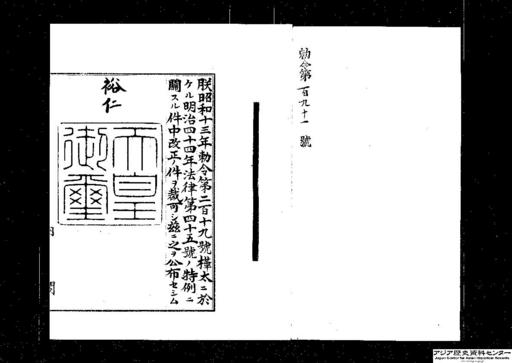 勅令第百九十一號
朕昭和十三年勅令第二百十九號樺太ニ於
ケル明治四十四年法律第四十五號ノ特例ニ
關スル件中改正ノ件ヲ裁可シ茲ニ之ヲ公布セシム
裕仁
天皇
御璽
内閣
アジア歴史資料センター
Japan Center for Asian Historical Records